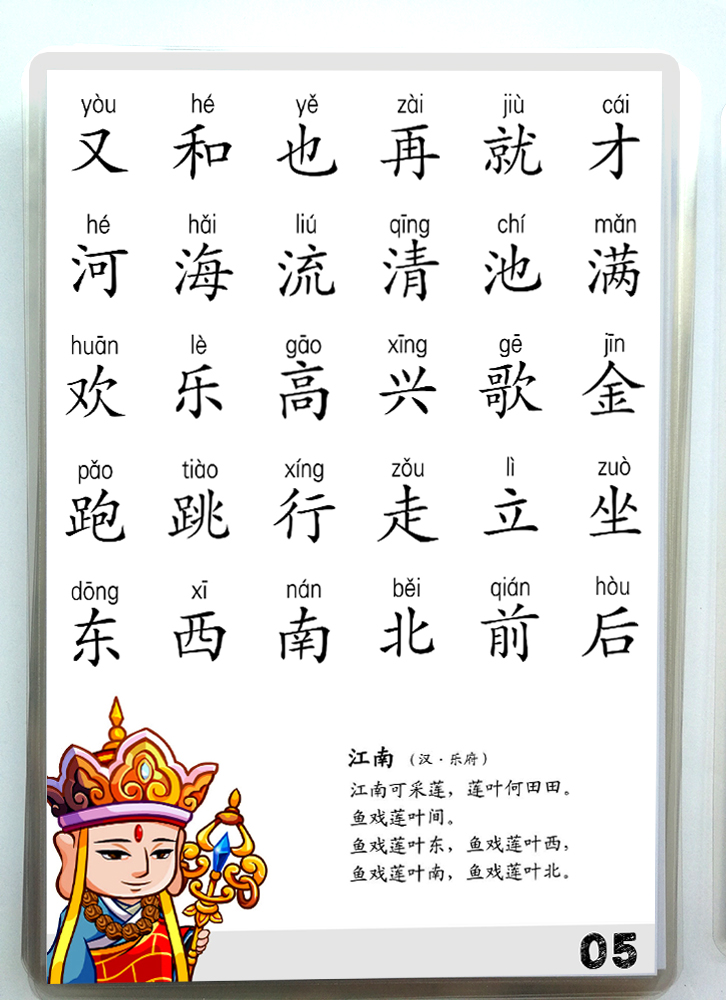 yòu hé yě zài jiù cái
又 和 也 再 就 才
hé hǎi liú qīng chí mǎn
河 海 流 清 池 满
huān lè gāo xīng gē jīn
欢 乐 高 兴 歌 金
pǎo tiào xíng zǒu lì zuò
跑 跳 行 走 立 坐
dōng xī nán běi qián hòu
东 西 南 北 前 后
江南 （汉·乐府）
江南可采莲，莲叶何田田。
鱼戏莲叶间。
鱼戏莲叶东，鱼戏莲叶西，
鱼戏莲叶南，鱼戏莲叶北。
05